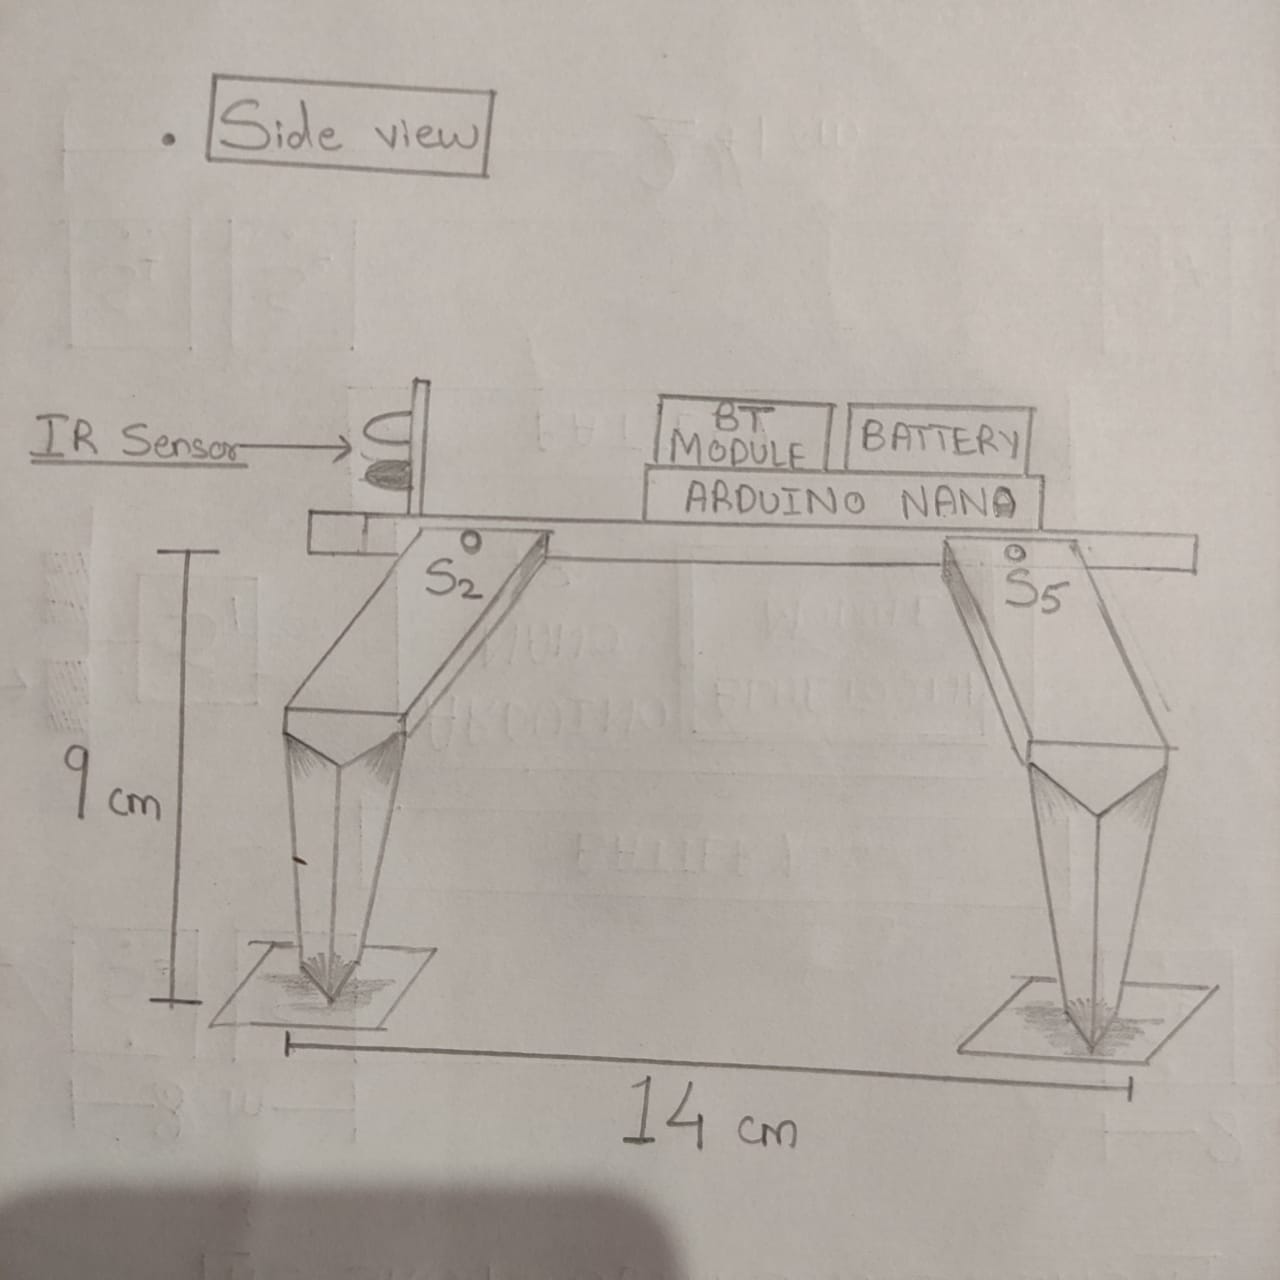 • Side view
IR Sensor
BT
MODULE
BATTERY
ARDUINO NANO
S2
S5
9 cm
14 cm